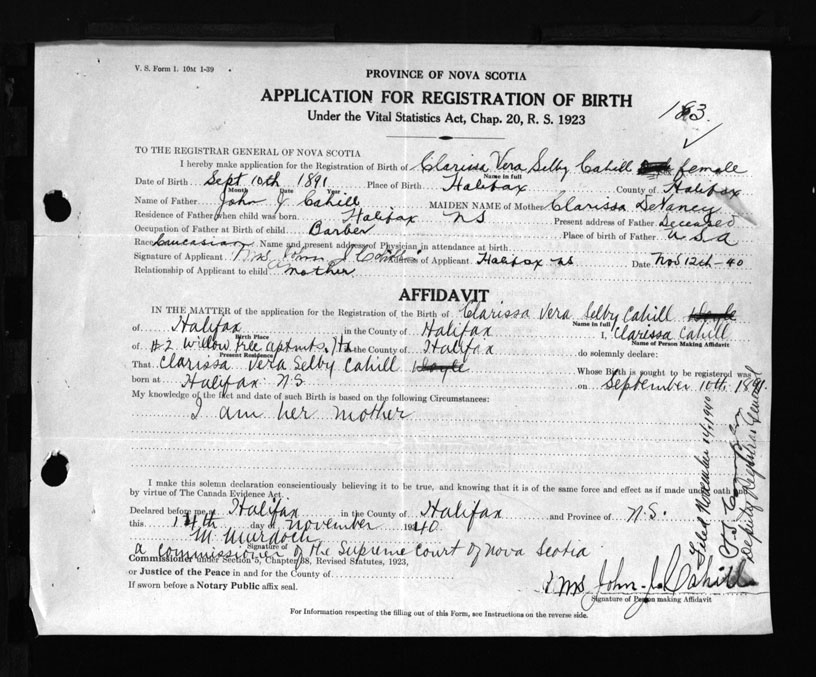 V. S. Form 1. 10M 1-39
PROVINCE OF NOVA SCOTIA
APPLICATION FOR REGISTRATION OF BIRTH
183.
Under the Vital Statistics Act, Chap. 20, R. S. 1923
TO THE REGISTRAR GENERAL OF NOVA SCOTIA
I hereby make application for the Registration of Birth of Clarissa Vera Selby Cahill female
Name in full
Date of Birth Sept 10th 1891 Place of Birth Halifax County of Halifax
Month Date Year
Name of Father John J Cahill MAIDEN NAME of Mother Clarissa DeVaney
Residence of Father when child was born Halifax NS Present address of Father Deceased
Occupation of Father at Birth of child Barber Place of birth of Father U.S.A
Race Caucasian Name and present address of Physician in attendance at birth
Signature of Applicant Mrs John J Cahill Address of Applicant Halifax NS Date Nov 12th-40
Relationship of Applicant to child Mother
AFFIDAVIT
IN THE MATTER of the application for the Registration of the Birth of Clarissa Vera Selby Cahill Doyle
Name in full
of Halifax in the County of Halifax I, Clarissa Cahill
Birth Place Name of Person Making Affidavit
of #2 Willow Tree aptmts, Hx in the County of Halifax do solemnly declare:
Present Residence
That Clarissa Vera Selby Cahill Doyle Whose Birth is sought to be registered was
born at Halifax N.S. on September 10th 1891
My knowledge of the fact and date of such Birth is based on the following Circumstances:
I am her mother
I make this solemn declaration conscientiously believing it to be true, and knowing that it is of the same force and effect as if made under oath
by virtue of The Canada Evidence Act.
Declared before me at Halifax in the County of Halifax and Province of N.S.
this 14th day of November 1940
M Murdoch
Signature of
a commissioner of the Supreme Court of Nova Scotia
Commissioner under Section 5, Chapter 38, Revised Statutes, 1923,
or Justice of the Peace in and for the County of
If sworn before a Notary Public affix seal.
Mrs John J. Cahill
Signature of Person making Affidavit
For Information respecting the filling out of this Form, see Instructions on the reverse side.
Filed November 14, 1940
Deputy Registrar General